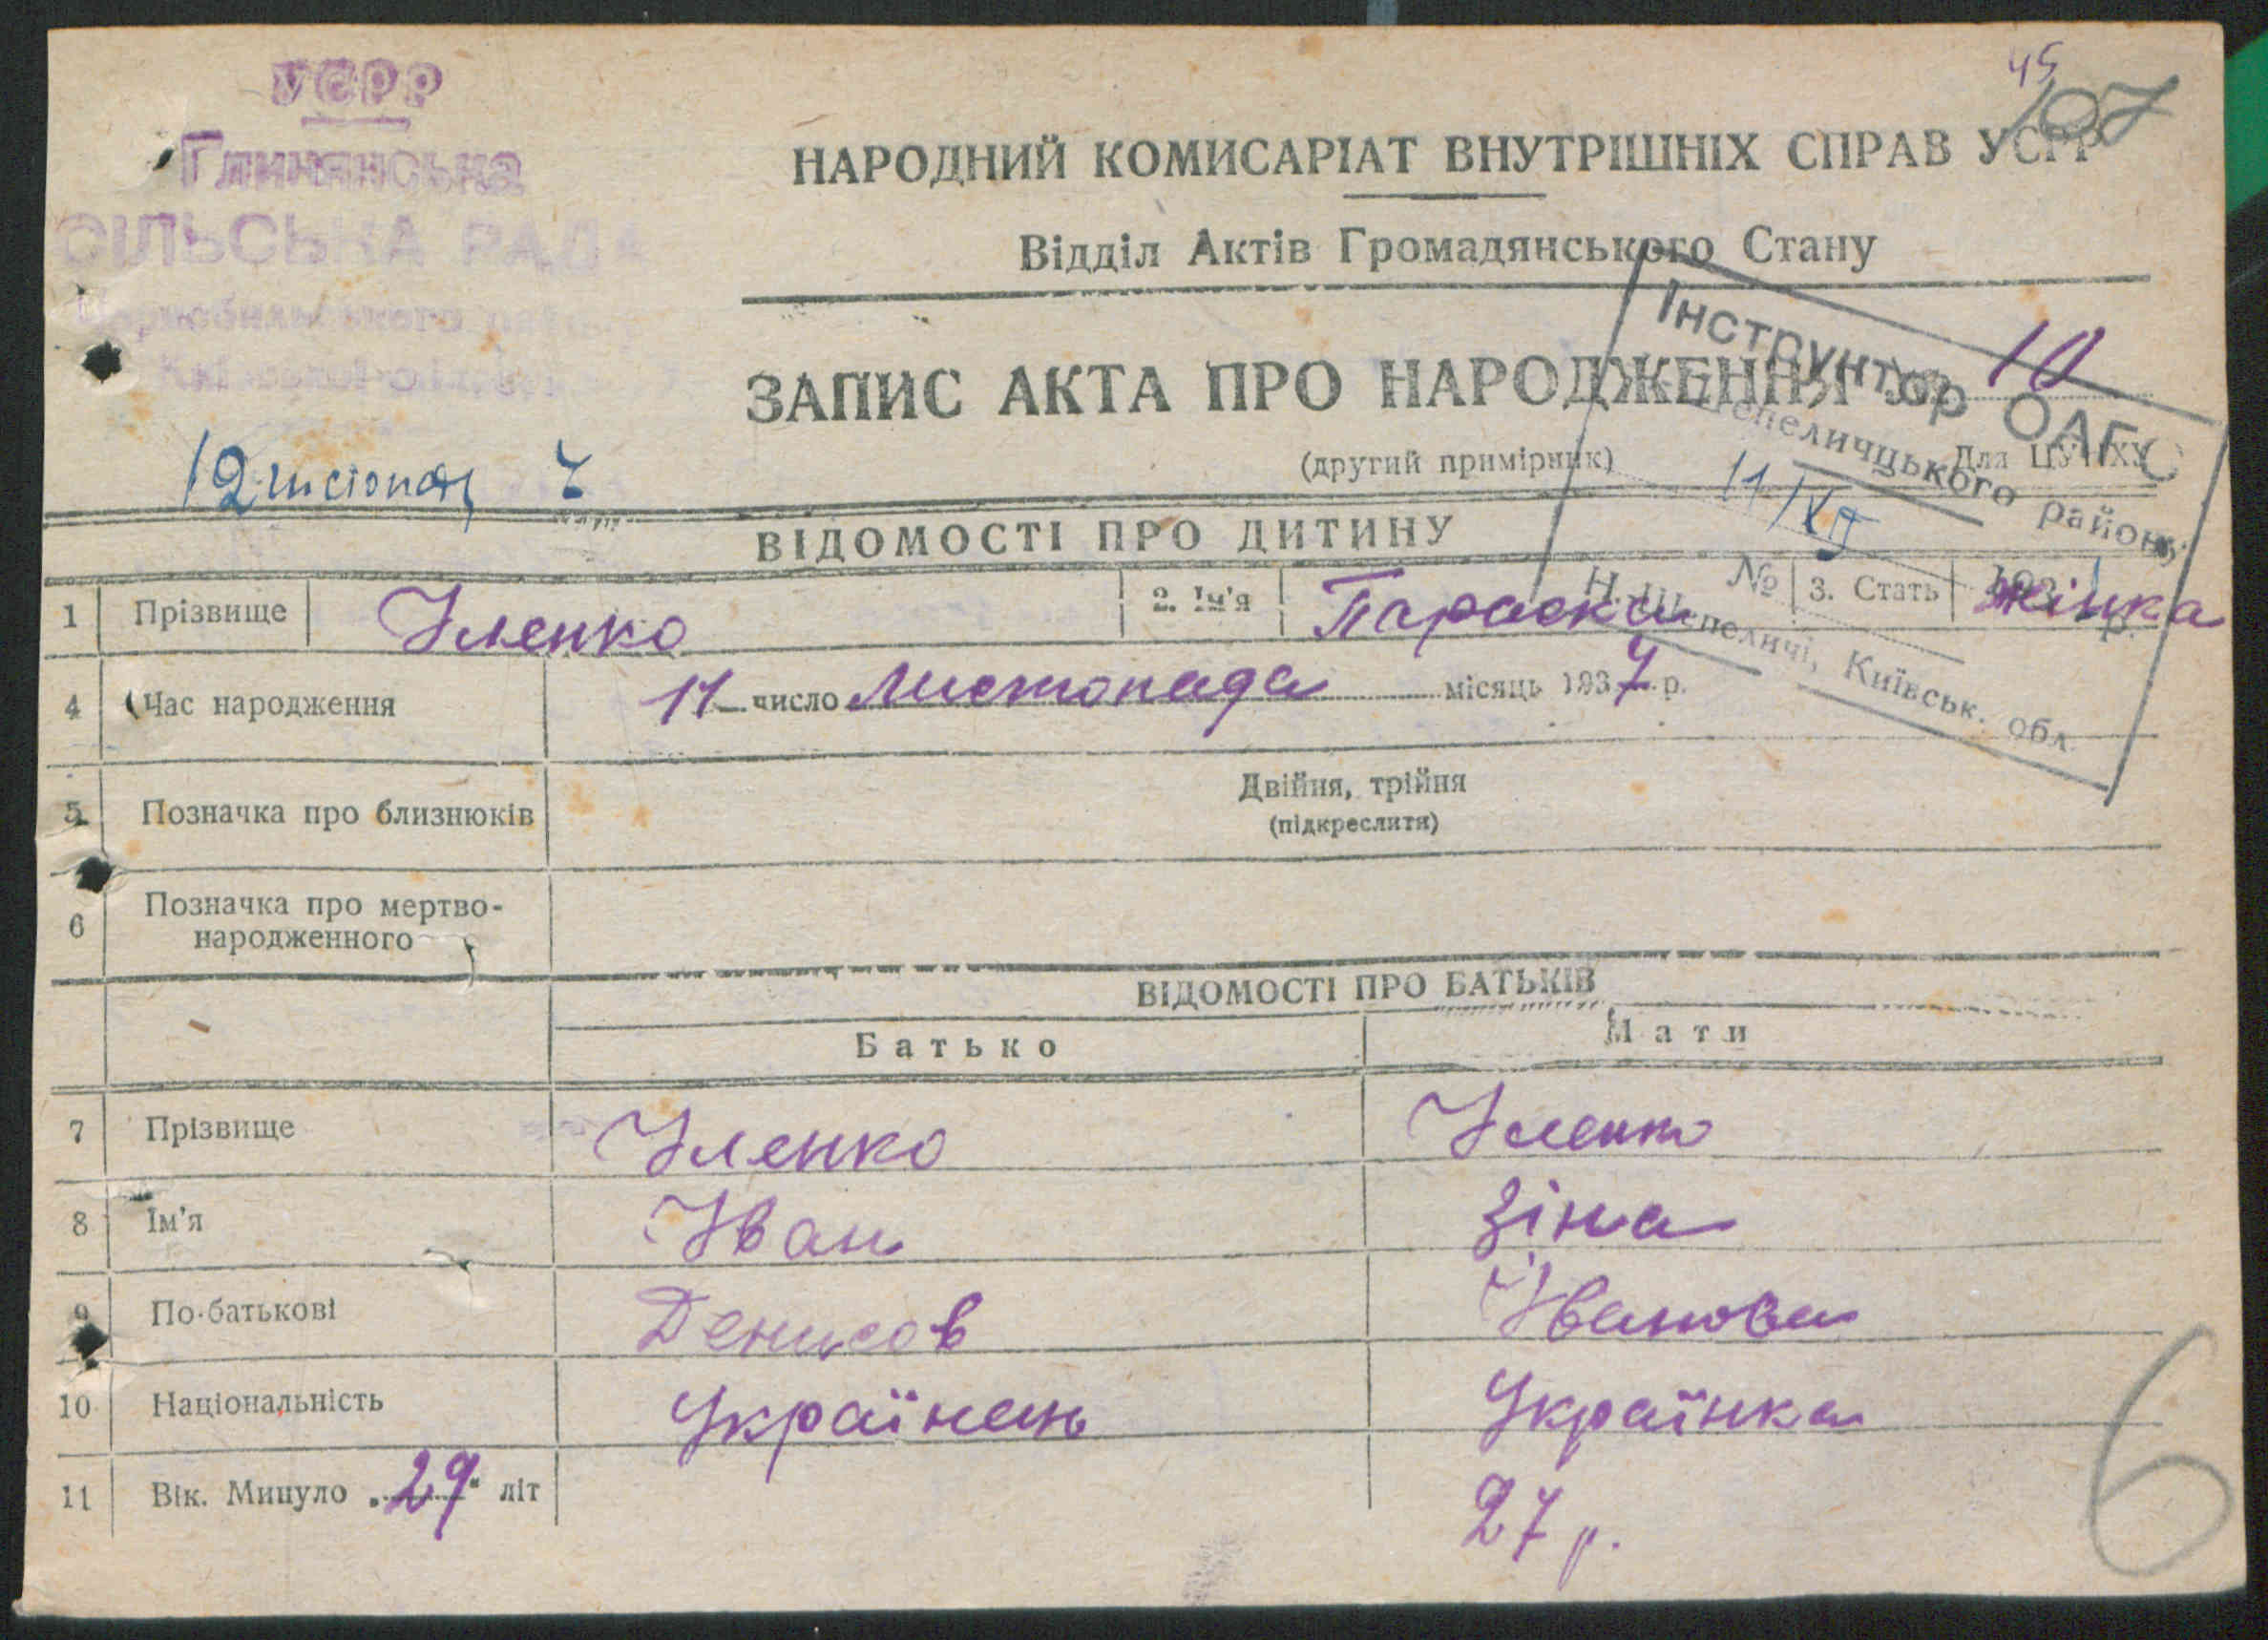 УСРР
Глинянська
СІЛЬСЬКА РАДА
Чорнобильського району
Київської області
45
107
НАРОДНИЙ КОМИСАРІАТ ВНУТРІШНІХ СПРАВ УСРР
Відділ Актів Громадянського Стану
ЗАПИС АКТА ПРО НАРОДЖЕННЯ № 10
(другий примірник)
Для ЦУНХУ
12 листопад 7
Інструктор ОАГС
Шепеличцького району
11/XII
№ 193 р.
Н. Шепеличі, Київськ. обл.
ВІДОМОСТІ ПРО ДИТИНУ
1 Прізвище Іленко 2. Ім'я Параска 3. Стать жінка
4 Час народження 11 число Листопада місяць 1937 р.
5 Позначка про близнюків Двійня, трійня
(підкреслити)
6 Позначка про мертво-
народженного
ВІДОМОСТІ ПРО БАТЬКІВ
Батько Мати
7 Прізвище Іленко Іленко
8 Ім'я Іван Зіна
9 По-батькові Денисов Іванова
10 Національність Українець Українка
11 Вік. Минуло 29 літ 27 р.
6